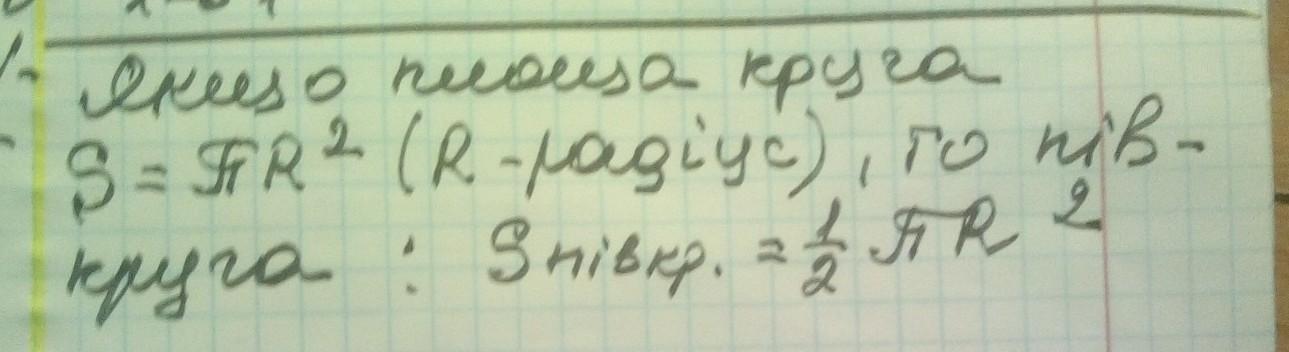 Якщо площа круга
S = πR² (R - радіус), то пів-
круга : Sпівкр. = 1/2 πR²